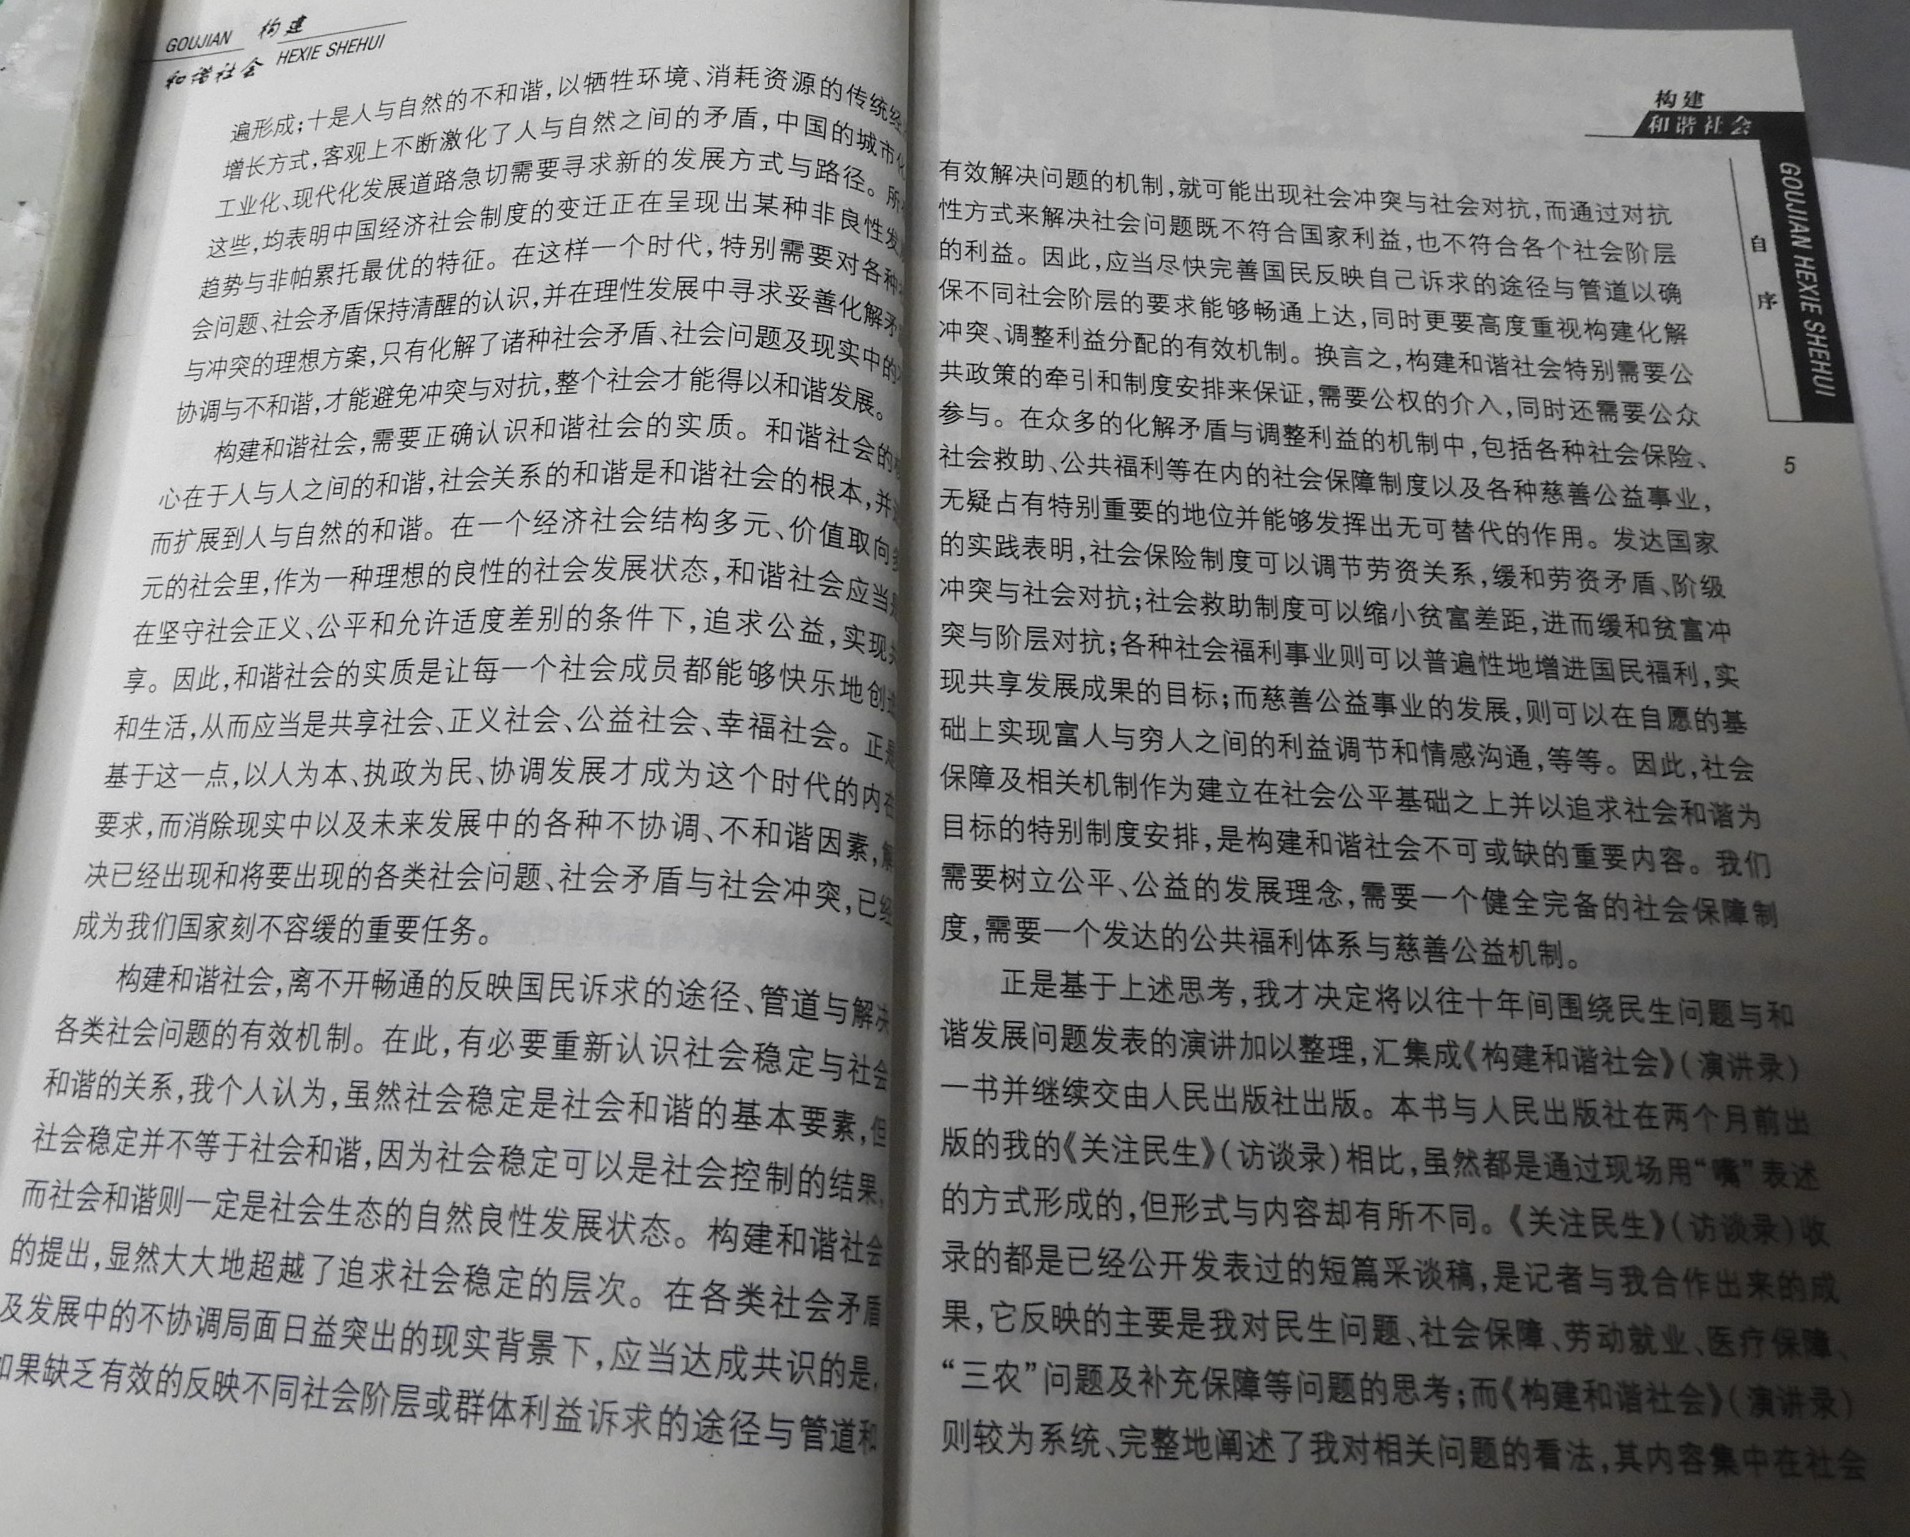 GOUJIAN 构建
和谐社会 HEXIE SHEHUI
遍形成;十是人与自然的不和谐,以牺牲环境、消耗资源的传统经
增长方式,客观上不断激化了人与自然之间的矛盾,中国的城市化
工业化、现代化发展道路急切需要寻求新的发展方式与路径。所
这些,均表明中国经济社会制度的变迁正在呈现出某种非良性发
趋势与非帕累托最优的特征。在这样一个时代,特别需要对各种
会问题、社会矛盾保持清醒的认识,并在理性发展中寻求妥善化解矛
与冲突的理想方案,只有化解了诸种社会矛盾、社会问题及现实中的
协调与不和谐,才能避免冲突与对抗,整个社会才能得以和谐发展。
构建和谐社会,需要正确认识和谐社会的实质。和谐社会的
心在于人与人之间的和谐,社会关系的和谐是和谐社会的根本,并
而扩展到人与自然的和谐。在一个经济社会结构多元、价值取向多
元的社会里,作为一种理想的良性的社会发展状态,和谐社会应当是
在坚守社会正义、公平和允许适度差别的条件下,追求公益,实现共
享。因此,和谐社会的实质是让每一个社会成员都能够快乐地创造
和生活,从而应当是共享社会、正义社会、公益社会、幸福社会。正是
基于这一点,以人为本、执政为民、协调发展才成为这个时代的内在
要求,而消除现实中以及未来发展中的各种不协调、不和谐因素,解
决已经出现和将要出现的各类社会问题、社会矛盾与社会冲突,已经
成为我们国家刻不容缓的重要任务。
构建和谐社会,离不开畅通的反映国民诉求的途径、管道与解决
各类社会问题的有效机制。在此,有必要重新认识社会稳定与社会
和谐的关系,我个人认为,虽然社会稳定是社会和谐的基本要素,但
社会稳定并不等于社会和谐,因为社会稳定可以是社会控制的结果,
而社会和谐则一定是社会生态的自然良性发展状态。构建和谐社会
的提出,显然大大地超越了追求社会稳定的层次。在各类社会矛盾
及发展中的不协调局面日益突出的现实背景下,应当达成共识的是,
如果缺乏有效的反映不同社会阶层或群体利益诉求的途径与管道和
构建
和谐社会
GOUJIAN HEXIE SHEHUI
自序
5
有效解决问题的机制,就可能出现社会冲突与社会对抗,而通过对抗
性方式来解决社会问题既不符合国家利益,也不符合各个社会阶层
的利益。因此,应当尽快完善国民反映自己诉求的途径与管道以确
保不同社会阶层的要求能够畅通上达,同时更要高度重视构建化解
冲突、调整利益分配的有效机制。换言之,构建和谐社会特别需要公
共政策的牵引和制度安排来保证,需要公权的介入,同时还需要公众
参与。在众多的化解矛盾与调整利益的机制中,包括各种社会保险、
社会救助、公共福利等在内的社会保障制度以及各种慈善公益事业,
无疑占有特别重要的地位并能够发挥出无可替代的作用。发达国家
的实践表明,社会保险制度可以调节劳资关系,缓和劳资矛盾、阶级
冲突与社会对抗;社会救助制度可以缩小贫富差距,进而缓和贫富冲
突与阶层对抗;各种社会福利事业则可以普遍性地增进国民福利,实
现共享发展成果的目标;而慈善公益事业的发展,则可以在自愿的基
础上实现富人与穷人之间的利益调节和情感沟通,等等。因此,社会
保障及相关机制作为建立在社会公平基础之上并以追求社会和谐为
目标的特别制度安排,是构建和谐社会不可或缺的重要内容。我们
需要树立公平、公益的发展理念,需要一个健全完备的社会保障制
度,需要一个发达的公共福利体系与慈善公益机制。
正是基于上述思考,我才决定将以往十年间围绕民生问题与和
谐发展问题发表的演讲加以整理,汇集成《构建和谐社会》(演讲录)
一书并继续交由人民出版社出版。本书与人民出版社在两个月前出
版的我的《关注民生》(访谈录)相比,虽然都是通过现场用“嘴”表述
的方式形成的,但形式与内容却有所不同。《关注民生》(访谈录)收
录的都是已经公开发表过的短篇采谈稿,是记者与我合作出来的成
果,它反映的主要是我对民生问题、社会保障、劳动就业、医疗保障、
“三农”问题及补充保障等问题的思考;而《构建和谐社会》(演讲录)
则较为系统、完整地阐述了我对相关问题的看法,其内容集中在社会